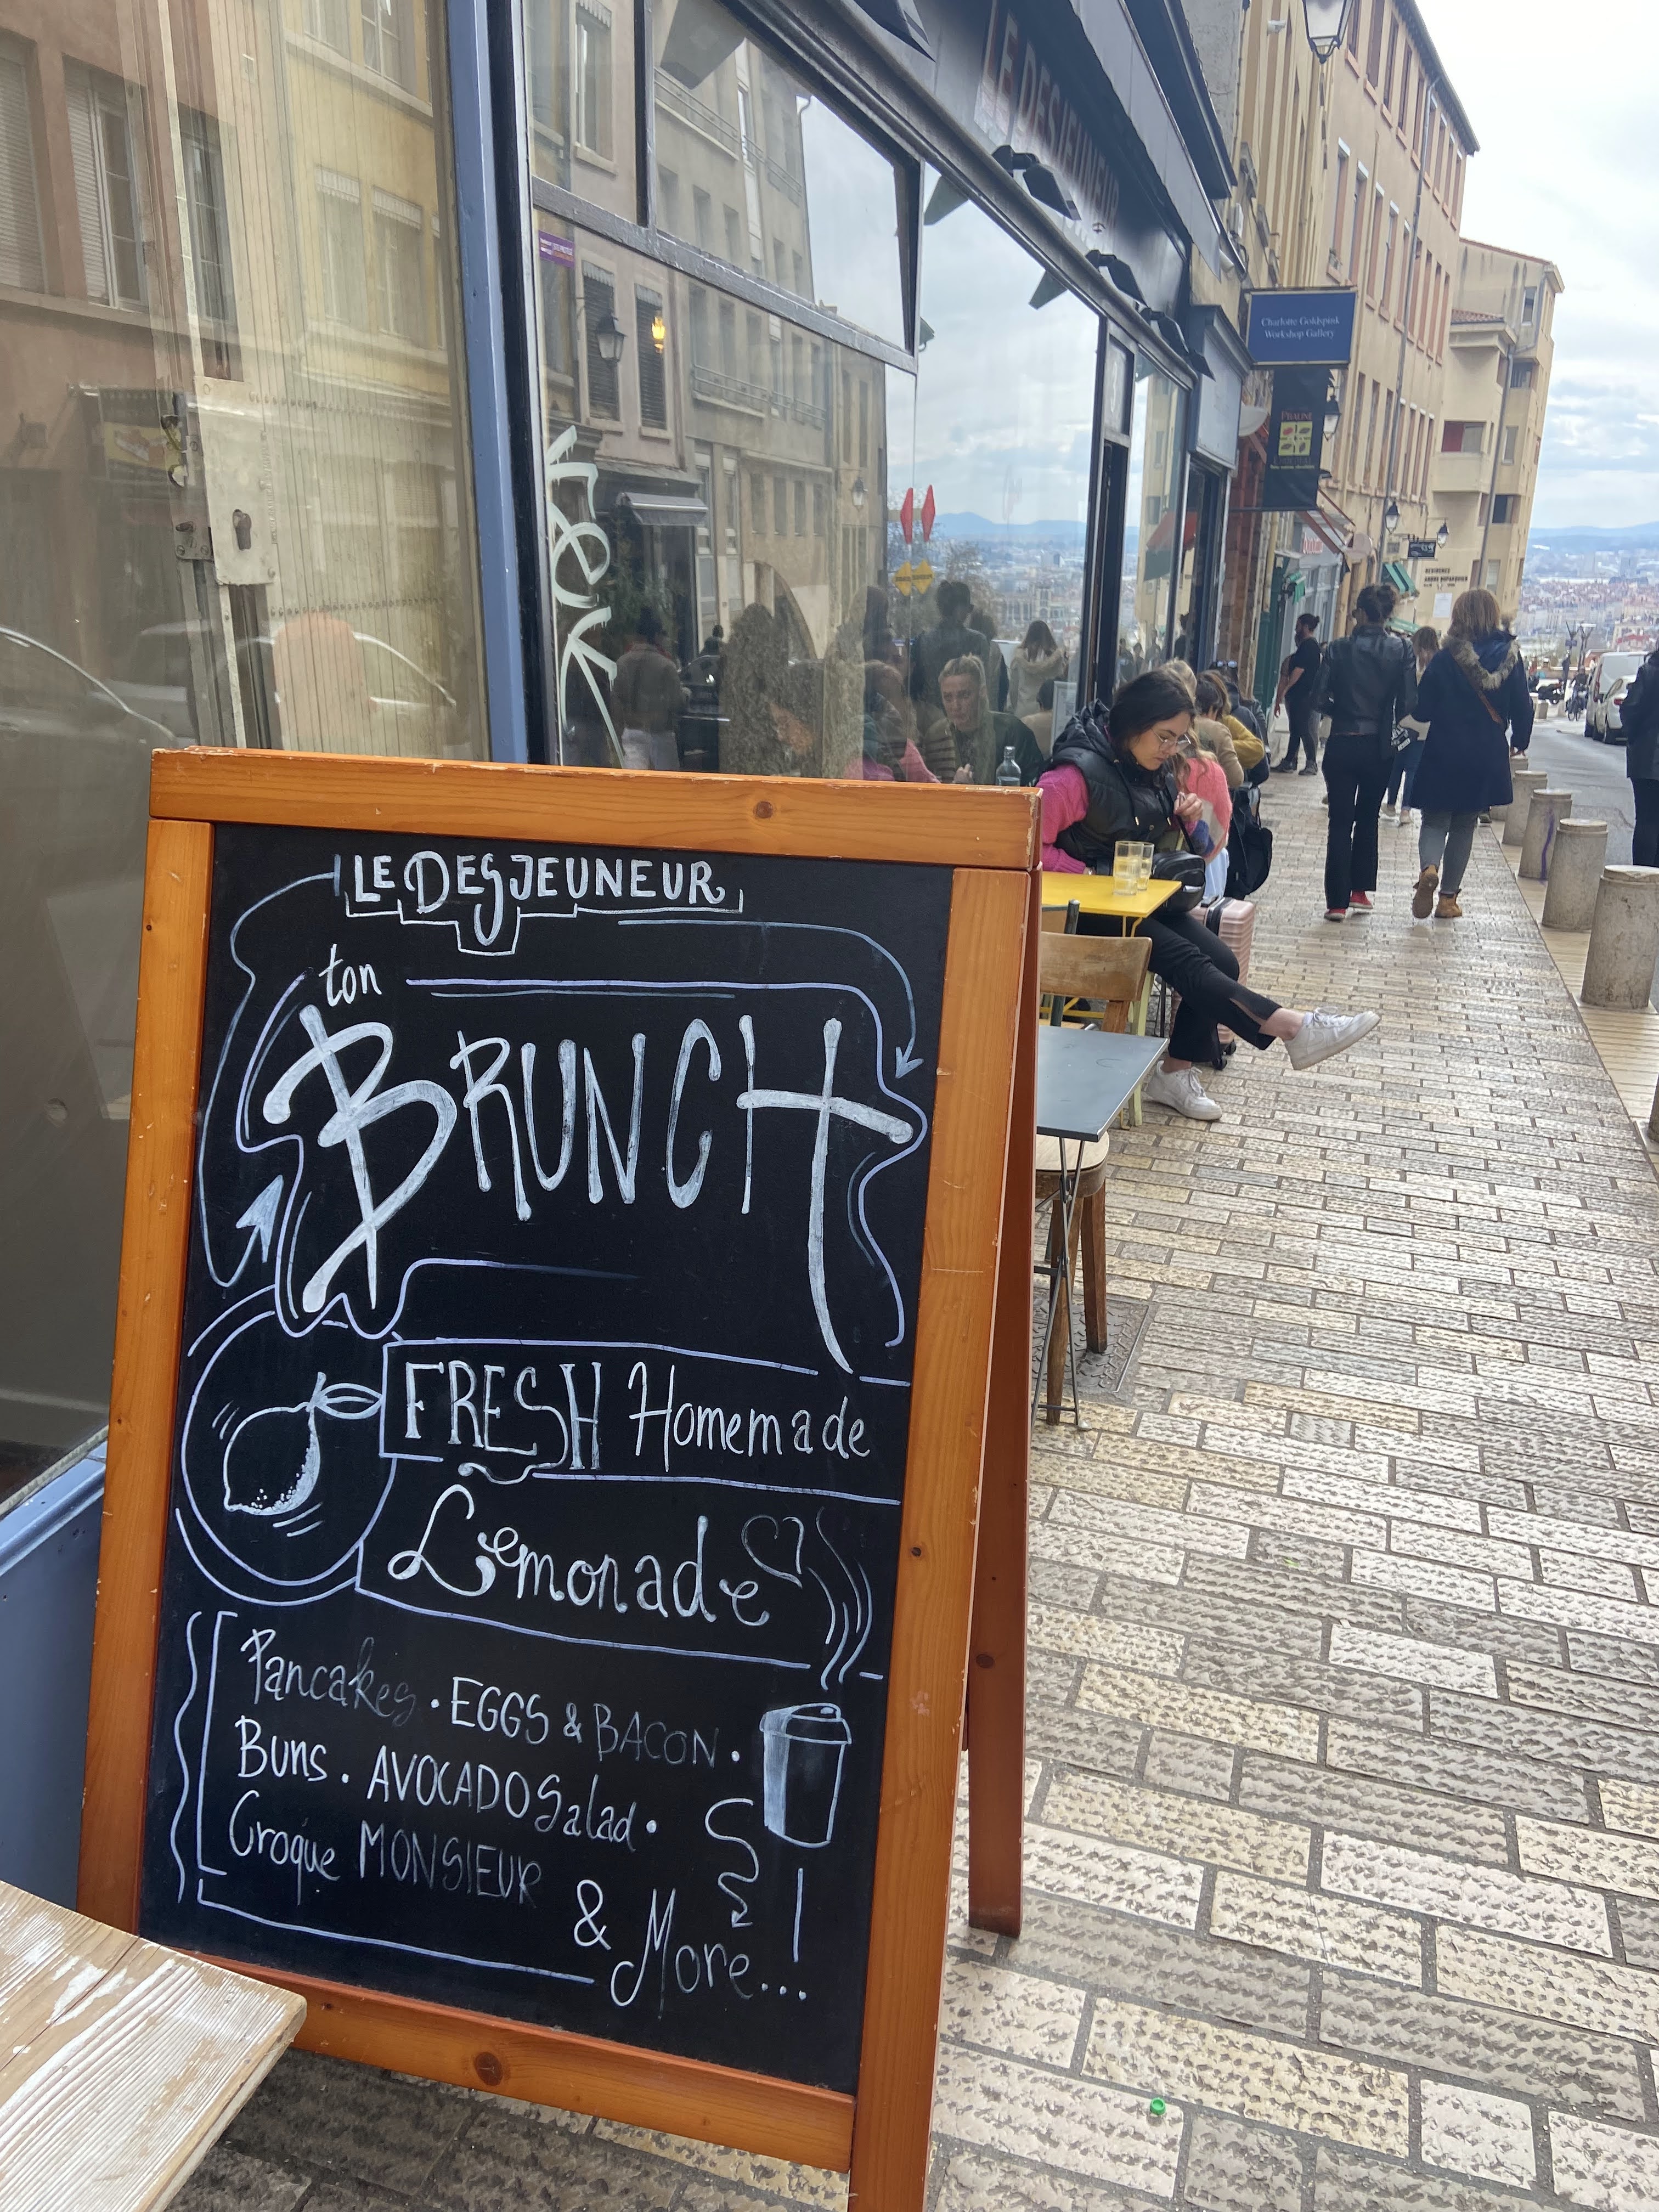 LE DESJEUNEUR
Charlotte Goldspink
Workshop Gallery
PRALINE
RESIDENCE
LE DESJEUNEUR
ton
BRUNCH
FRESH Homemade
Lemonade
Pancakes · EGGS & BACON ·
Buns · AVOCADO Salad ·
Croque MONSIEUR
& More...